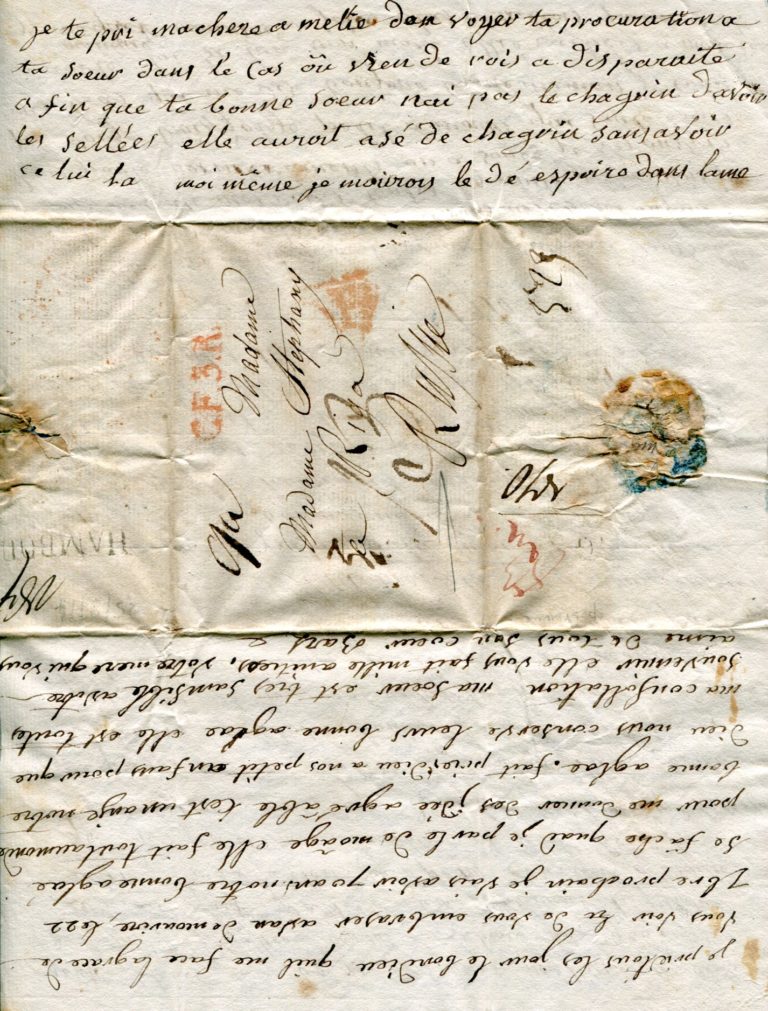 je te pri machere amelie dan voyer ta procuration a
ta soeur dans le cas oû rien de vois a disparaite
a fin que ta bonne soeur nai pas le chagrin davoir
les sellées elle auroit asé de chagrin sans avoir
ce lui la moi même je mourois le dé espoire dans lame
C.F.3.R.
Madame
Madame Stephany
a Riga
Russie
1270
HAMBUR
je prie tous les jour le bondieu quil me face la grace de
vous voir et de vous embraser avan de mourire, le 22
7bre prochain je vais avoir ans notre bonne aglaé
se fâche quad je parle de mon âge elle fait tout au monde
pour me donner des idée agréable cest un anje notre
bonne aglae. fait prier dieu a nos petit enfans pour que
dieu nous conserve leurs bonne aglae elle est toute
ma consollation ma soeur est tres sensible a votre
souvenir elle vous fait mille amities, votre mere qui vous
aime de tous son coeur